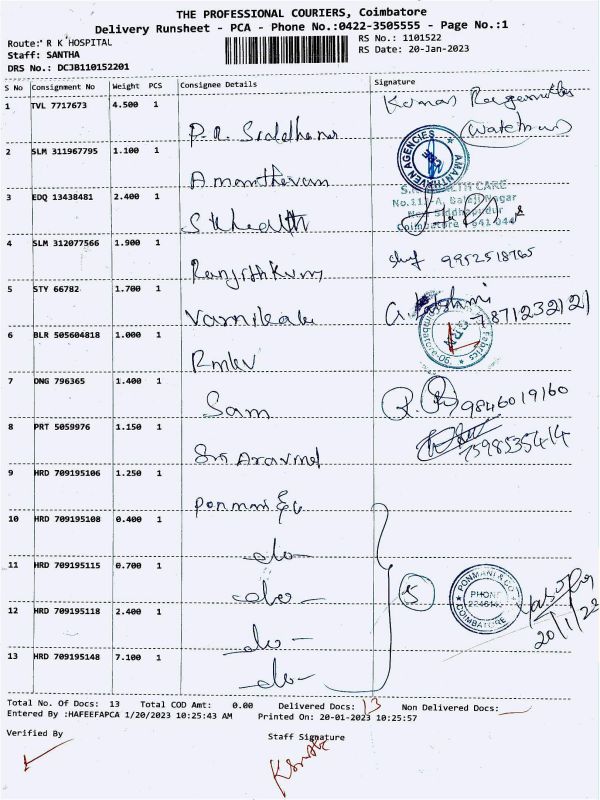 THE PROFESSIONAL COURIERS, Coimbatore
Delivery Runsheet - PCA - Phone No.:0422-3505555 - Page No.:1
Route: R K HOSPITAL
RS No.: 1101522
Staff: SANTHA
RS Date: 20-Jan-2023
DRS No.: DCJB110152201
S No Consignment No Weight PCS Consignee Details Signature
1 TVL 7717673 4.500 1
(Watchman)
2 SLM 311967795 1.100 1
AMANTHAVEN AGENCIES
3 EDQ 13438481 2.400 1 SK Health
HEALTH CARE
Balaji Nagar
New Siddhapudur
Coimbatore - 641 044
4 SLM 312077566 1.900 1 Ranjithkumar 9952518765
5 STY 66782 1.700 1 7871232121
6 BLR 505604818 1.000 1 Rmkv
Fabrics
7 DNG 796365 1.400 1 Sam 9846019160
8 PRT 5059976 1.150 1 Sri Aravind 7598535414
9 HRD 709195106 1.250 1 Ponmani & Co
10 HRD 709195108 0.400 1 -do-
11 HRD 709195115 0.700 1 -do- 5
PONMANI & CO
PHONE
COIMBATORE
12 HRD 709195118 2.400 1 -do-
20/1/23
13 HRD 709195148 7.100 1 -do-
Total No. Of Docs: 13 Total COD Amt: 0.00 Delivered Docs: 13 Non Delivered Docs:
Entered By :HAFEEFAPCA 1/20/2023 10:25:43 AM Printed On: 20-01-2023 10:25:57
Verified By Staff Signature